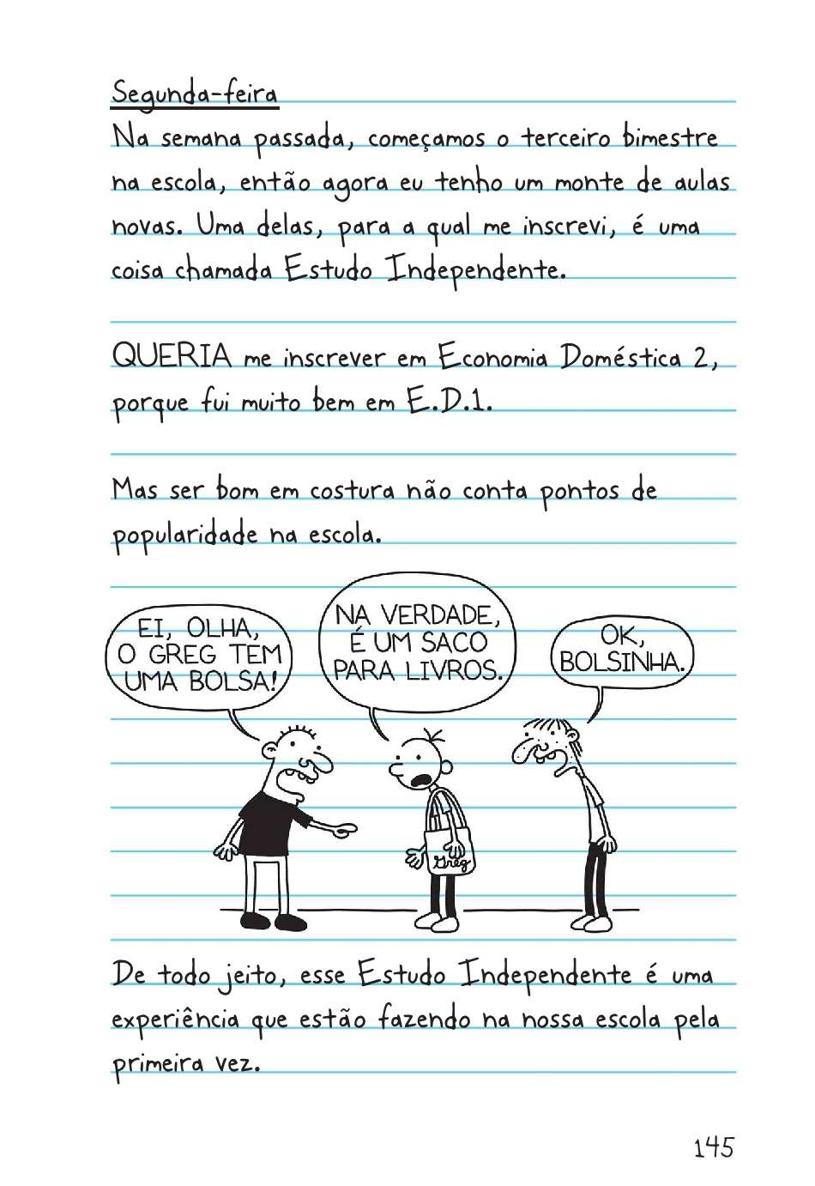 Segunda-feira
Na semana passada, começamos o terceiro bimestre
na escola, então agora eu tenho um monte de aulas
novas. Uma delas, para a qual me inscrevi, é uma
coisa chamada Estudo Independente.
QUERIA me inscrever em Economia Doméstica 2,
porque fui muito bem em E.D.1.
Mas ser bom em costura não conta pontos de
popularidade na escola.
EI, OLHA,
O GREG TEM
UMA BOLSA!
NA VERDADE,
É UM SACO
PARA LIVROS.
OK,
BOLSINHA.
Greg
De todo jeito, esse Estudo Independente é uma
experiência que estão fazendo na nossa escola pela
primeira vez.
145